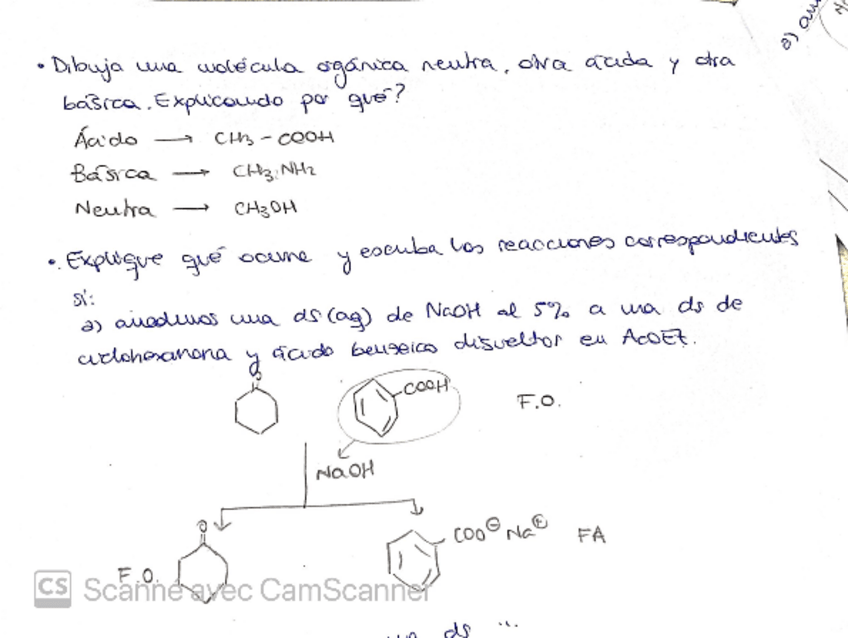 • Dibuja una molécula orgánica neutra, otra ácida y otra
básica. Explicando por qué?
Ácido → CH3 - COOH
Básica → CH3-NH2
Neutra → CH3OH
• Explique qué ocurre y escriba las reacciones correspondientes
si:
a) añadimos una ds (aq) de NaOH al 5% a una ds de
ciclohexanona y ácido benzoico disueltos en AcOEt.
O
COOH
F.O.
NaOH
O
COO⊖ Na⊕ FA
F.O.
CS Scanné avec CamScanner
ds